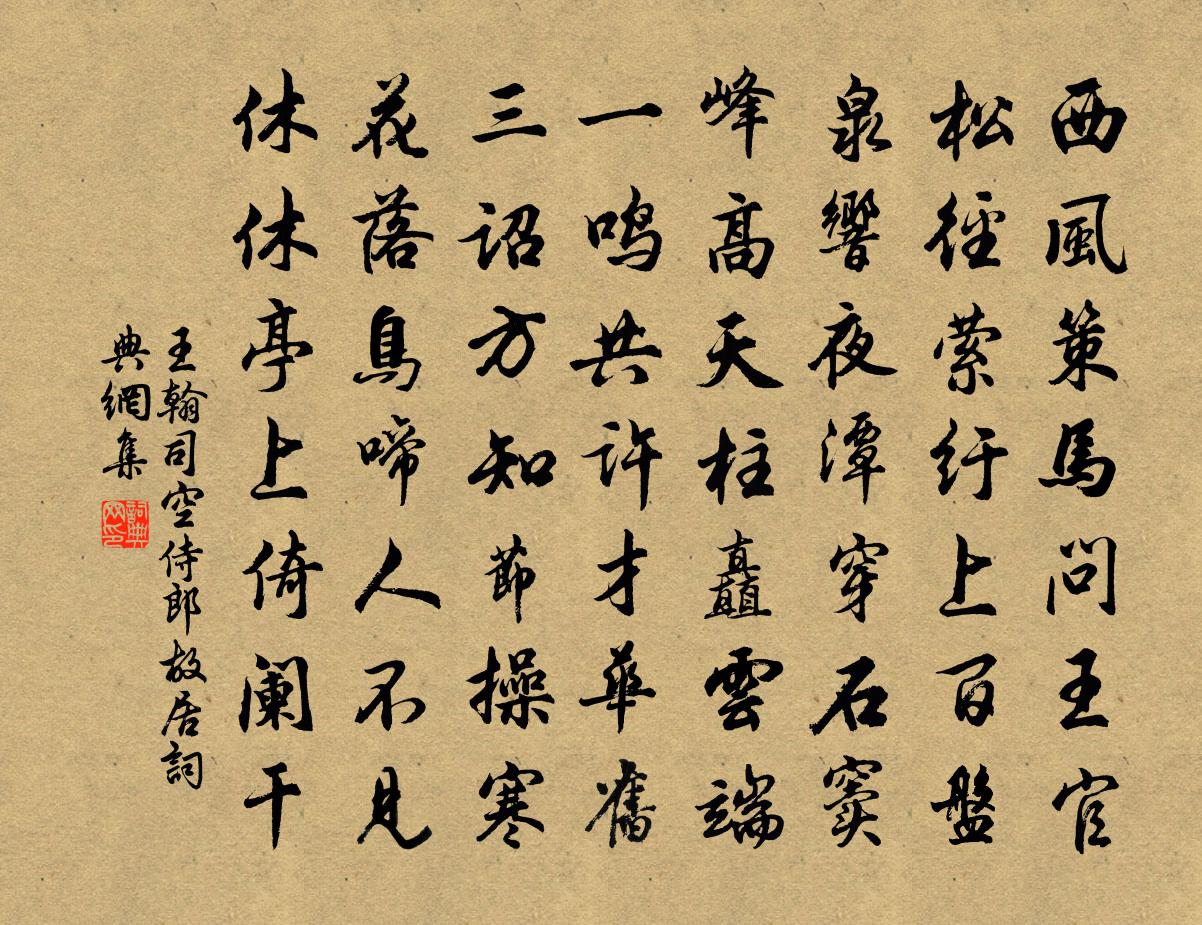 西風策馬問王官
松徑縈紆上百盤
泉響夜潭穿石竇
峰高天柱矗雲端
一鳴共許才華舊
三詔方知節操寒
花落鳥啼人不見
休休亭上倚闌干
王翰司空侍郎故居詞
典網集
詞典網印